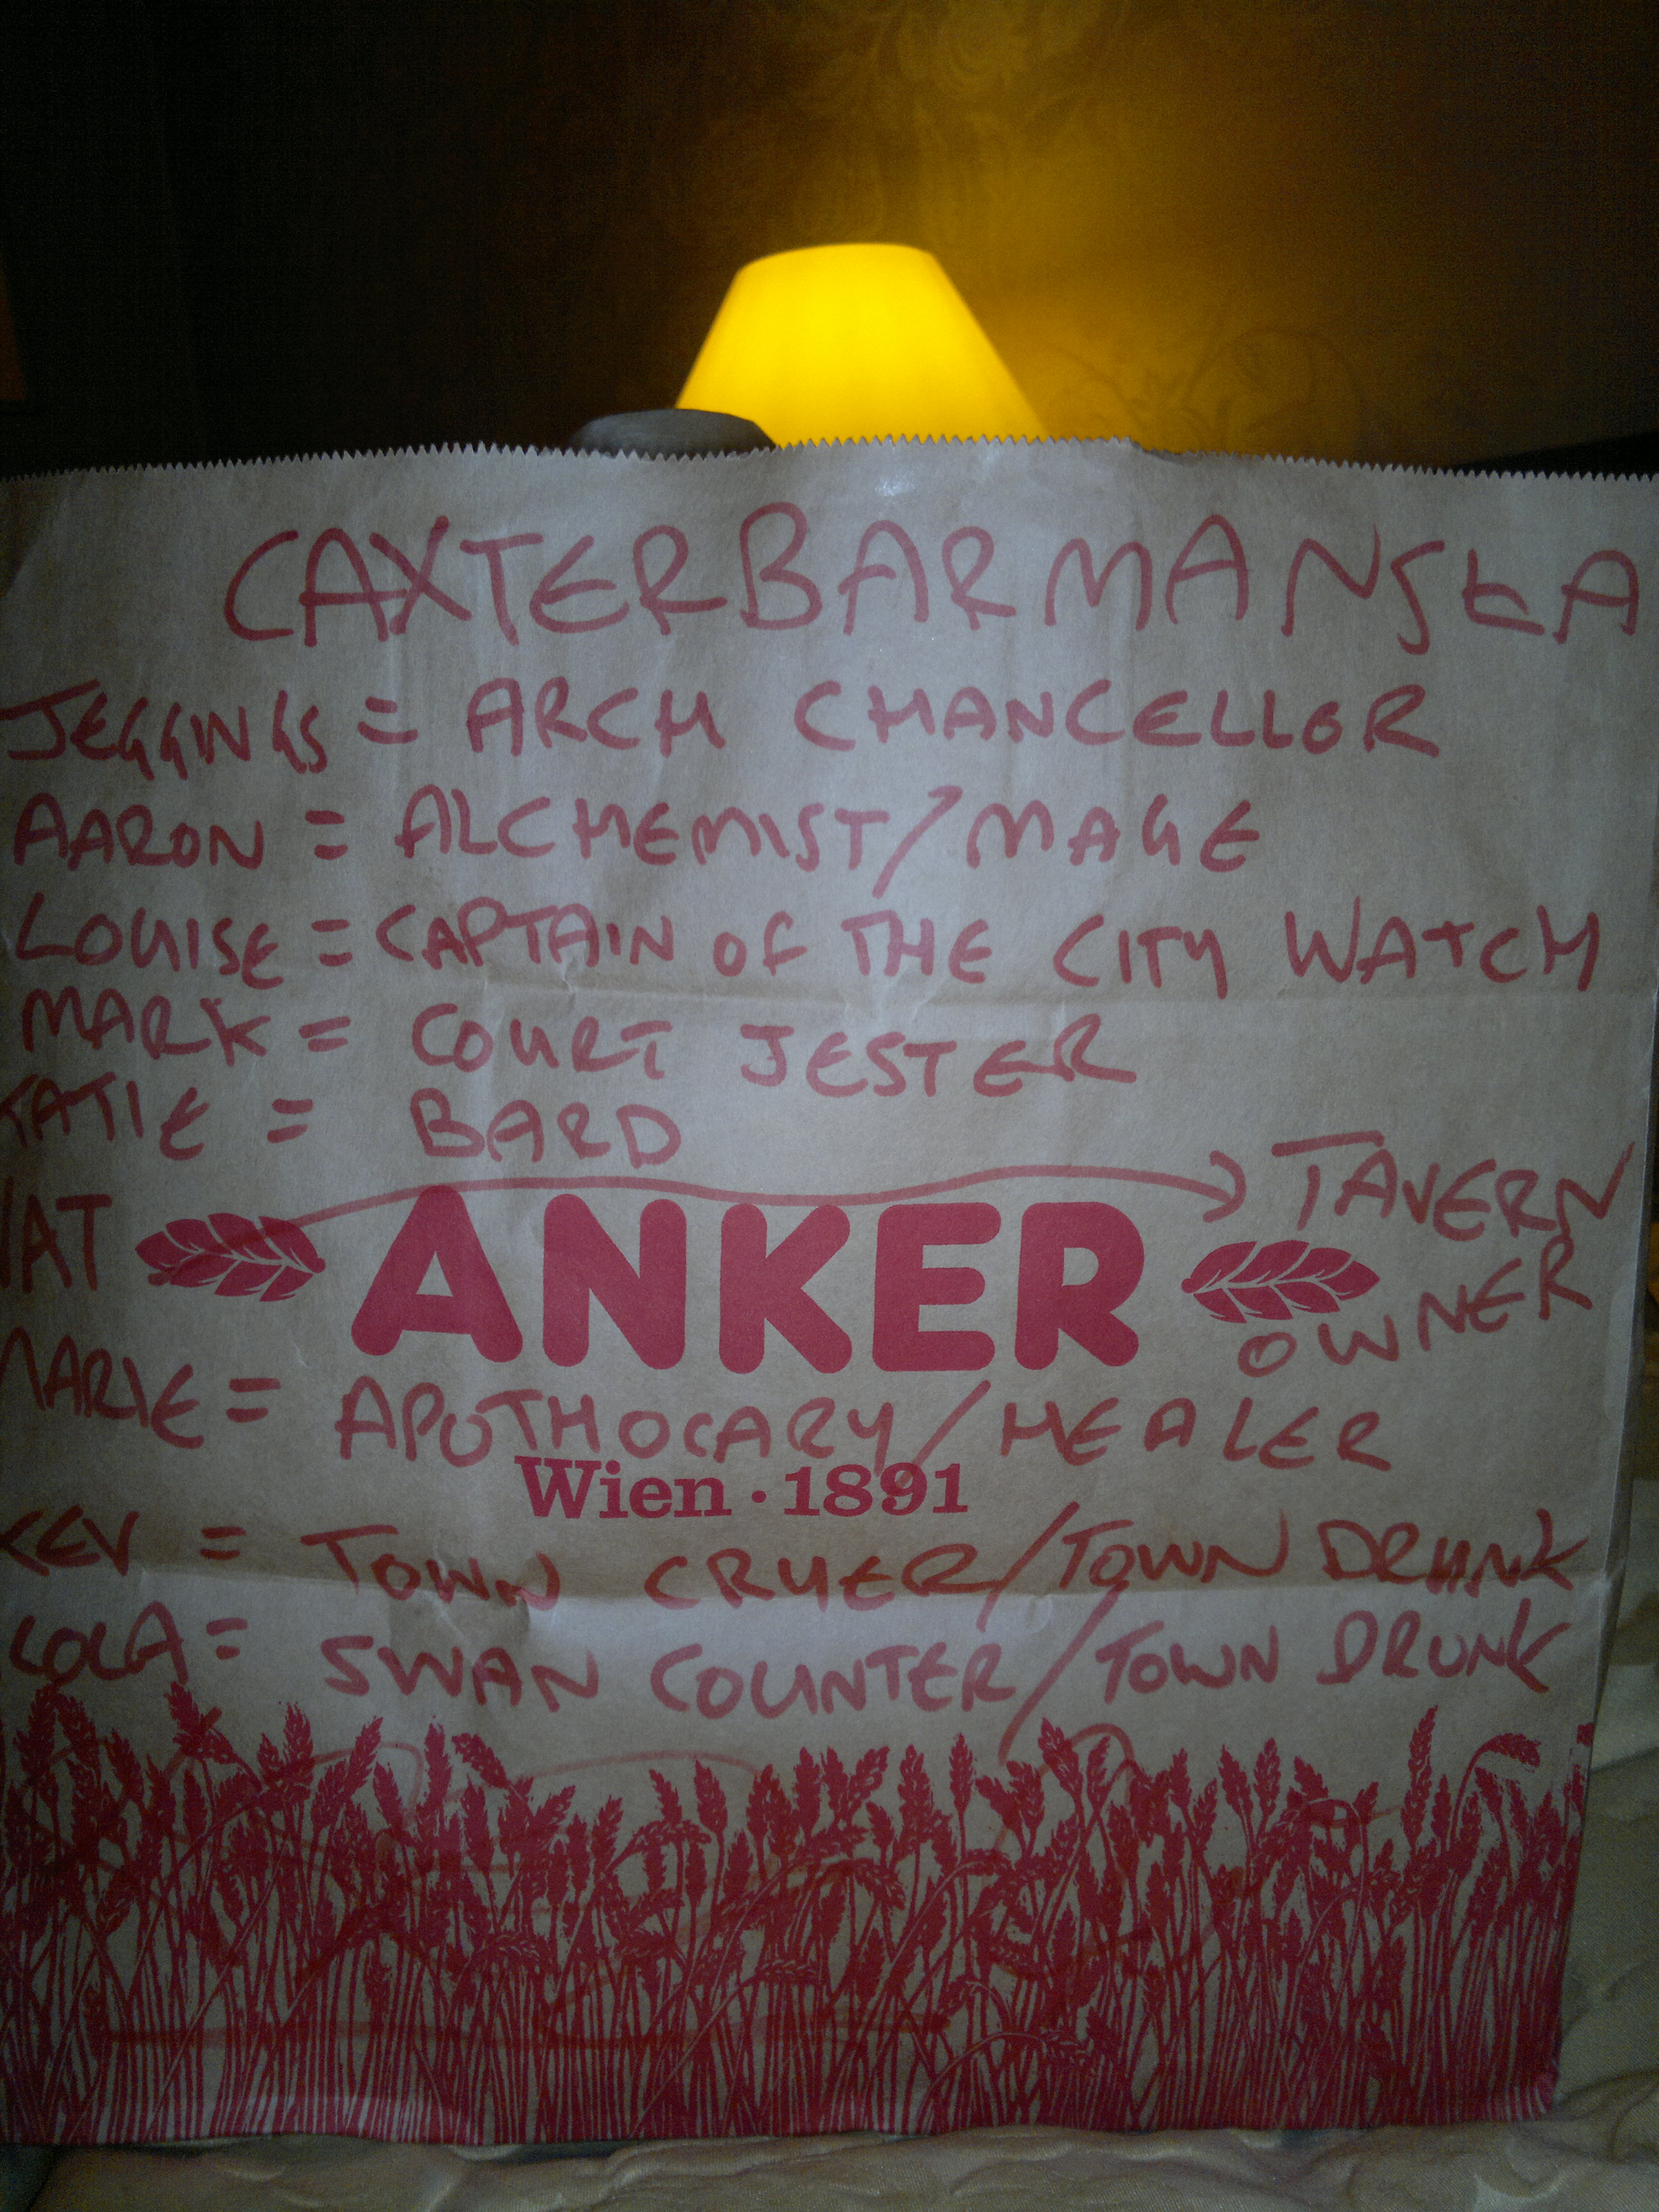 CAXTERBARMANSKA
JEGGINGS = ARCH CHANCELLOR
AARON = ALCHEMIST/MAGE
LOUISE = CAPTAIN OF THE CITY WATCH
MARK = COURT JESTER
KATIE = BARD
NAT → TAVERN
OWNER
ANKER
MARIE = APOTHOCARY/HEALER
Wien · 1891
KEV = TOWN CRYER/TOWN DRUNK
LOLA = SWAN COUNTER/TOWN DRUNK